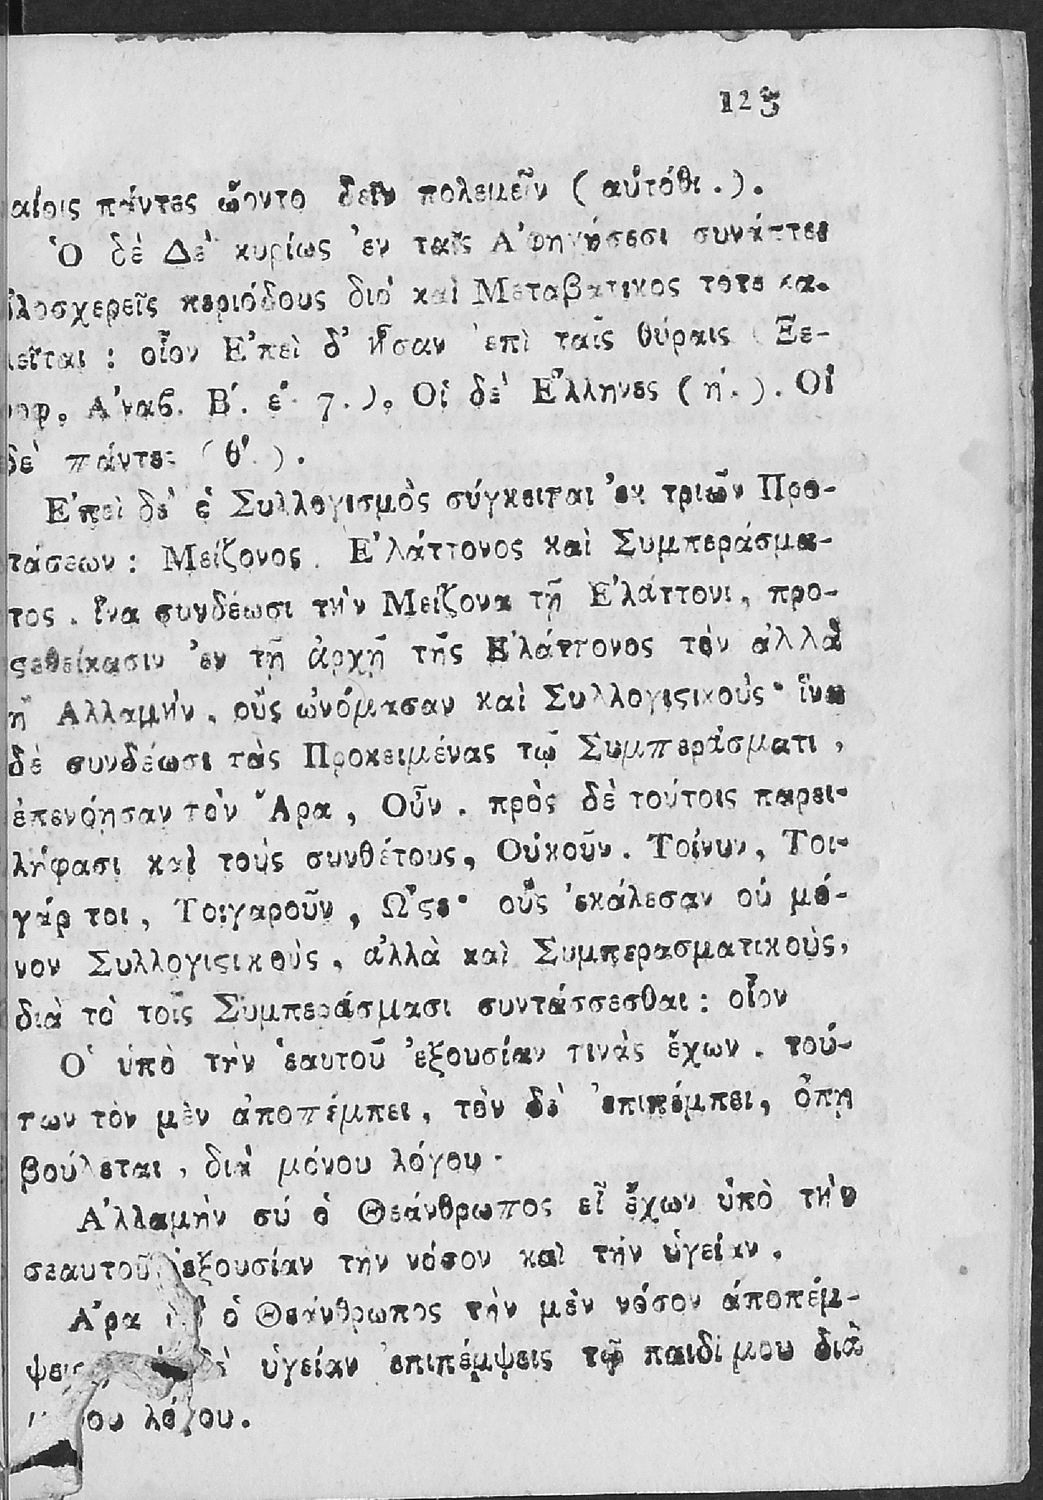 123
αίοις πάντες ᾤοντο δεῖν πολεμεῖν ( αὐτόθι . ) .
Ὁ δὲ Δε' κυρίως ἐν ταῖς Ἀφηγήσεσι συνάπτει
ὁλοσχερεῖς περιόδους διὸ καὶ Μεταβατικος τοτε κα-
λεῖται : οἷον Ἐπεὶ δ' ἦσαν ἐπὶ ταῖς θύραις ( Ξε-
νοφ. Ἀναβ. Β'. έ. 7. ). Οἱ δὲ Ἕλληνες ( ή. ) . Οἱ
δὲ πάντες ( θ'. ) .
Ἐπεὶ δὲ ὁ Συλλογισμὸς σύγκειται ἐκ τριῶν Προ-
τάσεων : Μείζονος . Ἐλάττονος καὶ Συμπεράσμα-
τος . ἵνα συνδέωσι τὴν Μείζονα τῇ Ἐλάττονι , προ-
ςεθείκασιν ἐν τῇ ἀρχῇ τῆς Ἐλάττονος τὸν ἀλλὰ
ἢ Ἀλλαμὴν , οὓς ὠνόμασαν καὶ Συλλογιςικούς · ἵνα
δὲ συνδέωσι τὰς Προκειμένας τῷ Συμπεράσματι ,
ἐπενόησαν τὸν Ἄρα , Οὖν . πρὸς δὲ τούτοις παρει-
λήφασι καὶ τοὺς συνθέτους , Οὐκοῦν . Τοίνυν , Τοι-
γάρ τοι , Τοιγαροῦν , Ὥςε · οὓς ἐκάλεσαν οὐ μό-
νον Συλλογιςικοὺς , ἀλλὰ καὶ Συμπερασματικοὺς ,
διὰ τὸ τοῖς Συμπεράσμασι συντάσσεσθαι : οἷον
Ὁ ὑπὸ τὴν ἑαυτοῦ ἐξουσίαν τινὰς ἔχων . τού-
των τὸν μὲν ἀποπέμπει , τὸν δὲ ἐπιπέμπει , ὅπη
βούλεται , διὰ μόνου λόγου ·
Ἀλλαμὴν σύ ὁ Θεάνθρωπος εἶ ἔχων ὑπὸ τὴν
σεαυτοῦ ἐξουσίαν τὴν νόσον καὶ τὴν ὑγείαν .
Ἄρα ὁ Θεάνθρωπος τὴν μὲν νόσον ἀποπέμ-
ψεις , δὲ ὑγείαν ἐπιπέμψεις τῷ παιδί μου διὰ
λόγου .